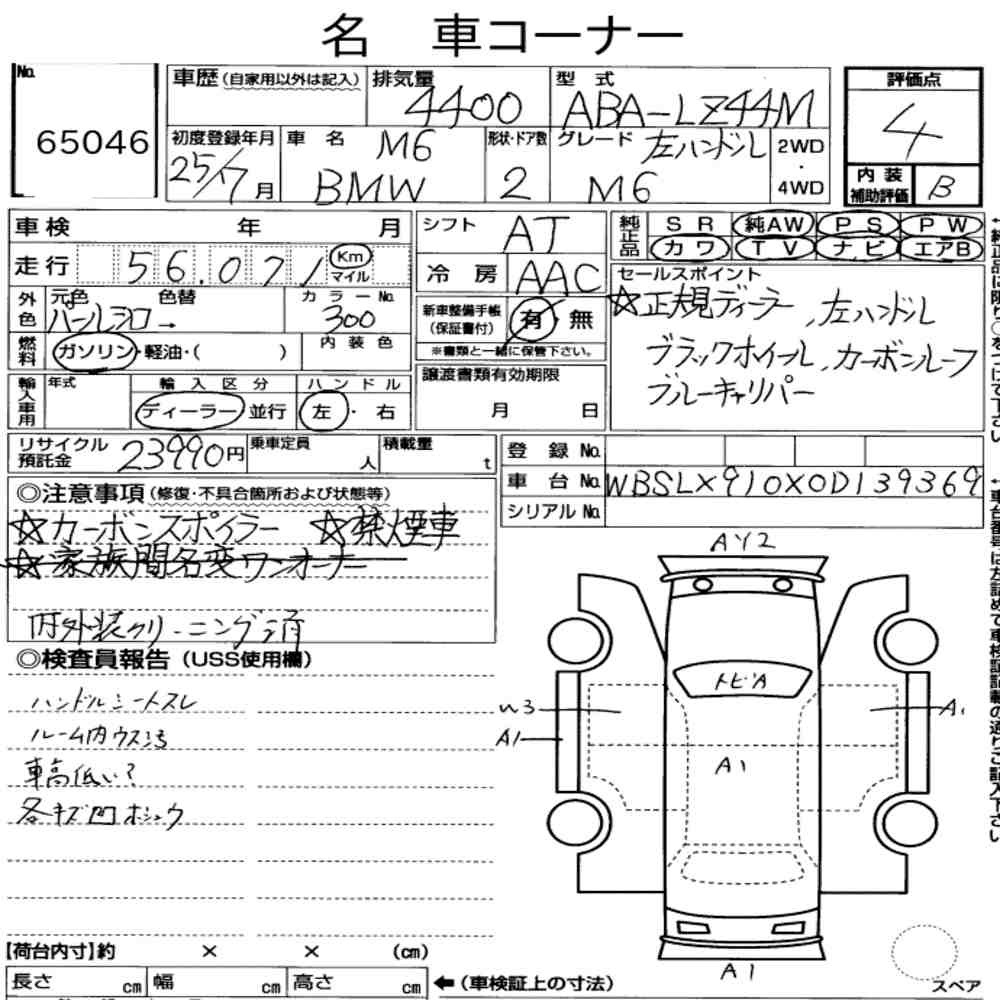 名 車コーナー
No.
65046
車歴 (自家用以外は記入)
排気量
4400
型式
ABA-LZ44M
評価点
4
初度登録年月
25/7月
車名
M6
BMW
形状・ドア数
2
グレード
左ハンドル
M6
2WD
・
4WD
内装
補助評価
B
車検 年 月
走行 56.071 Km マイル
外色
元色 色替
パールシロ→
カラーNo.
300
燃料
ガソリン・軽油・( )
内装色
輸入車用
年式
輸入区分
ディーラー 並行
ハンドル
左・右
リサイクル預託金
23990円
乗車定員
人
積載量
t
シフト
AT
冷房
AAC
新車整備手帳
(保証書付)
有・無
※書類と一緒に保管下さい。
譲渡書類有効期限
月 日
純正品
SR 純AW PS PW
カワ TV ナビ エアB
セールスポイント
☆正規ディーラー、左ハンドル
ブラックホイール、カーボンルーフ
ブルーキャリパー
登録No.
車台No. WBSLX910X0D139369
シリアルNo.
◎注意事項 (修復・不具合箇所および状態等)
☆カーボンスポイラー ☆禁煙車
☆家族間名変ワンオーナー
内外装クリーニング済
◎検査員報告 (USS使用欄)
ハンドルシートスレ
ルーム内ウス汚
車高低い?
各キズ凹ホシュウ
AY2
トビA
W3
A1
A1
A1
A1
【荷台内寸】約 × × (cm)
長さ cm 幅 cm 高さ cm
←(車検証上の寸法)
スペア
←純正品は限り○をつけて下さい
←車台番号は左詰めで車検証記載の通りご記入下さい